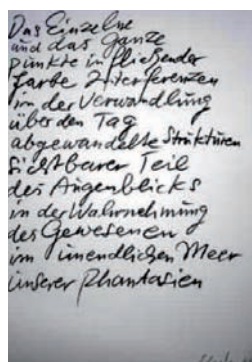 Das Einzelne
und das Ganze
Punkte in fließender
Farbe Interferenzen
in der Verwandlung
über den Tag
abgewandelte Strukturen
sichtbarer Teil
des Augenblicks
in der Wahrnehmung
des Gewesenen
im unendlichen Meer
unserer Phantasien